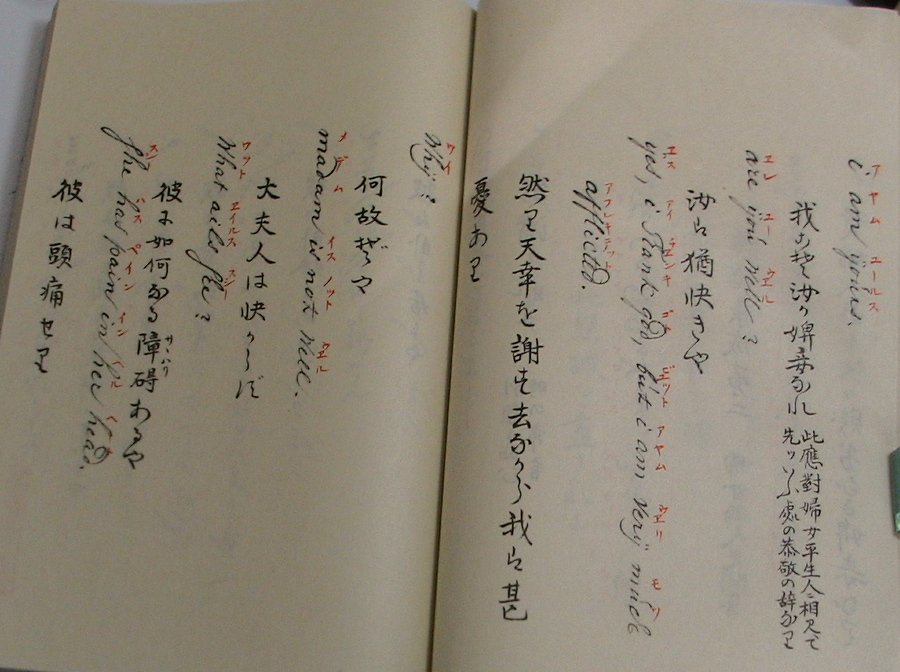 アヤム ユールス
i am yours.
我は汝が婢妾なれ
此應對婦女平生人ニ相見て
先ツいふ處の恭敬の辞なり
エン ユー ウエル
are you well?
汝は猶快きや
エス アイ テエンキ ゴット ビット アヤム ウエリ モツ
yes, i thank god, but i am verÿ much
アフレキテット
afflicted.
然り天幸を謝す去ながら我は甚
憂あり
ワイ
Whÿ?
何故ぞや
メデム イス ノット ウエル
madam is not well.
大夫人は快からず
ワット エイルス スシー
What ails she?
彼は如何なる障碍あるや
サハリ
スシー ハス ペイン イン ヘル
She has pain in her head.
彼は頭痛せり